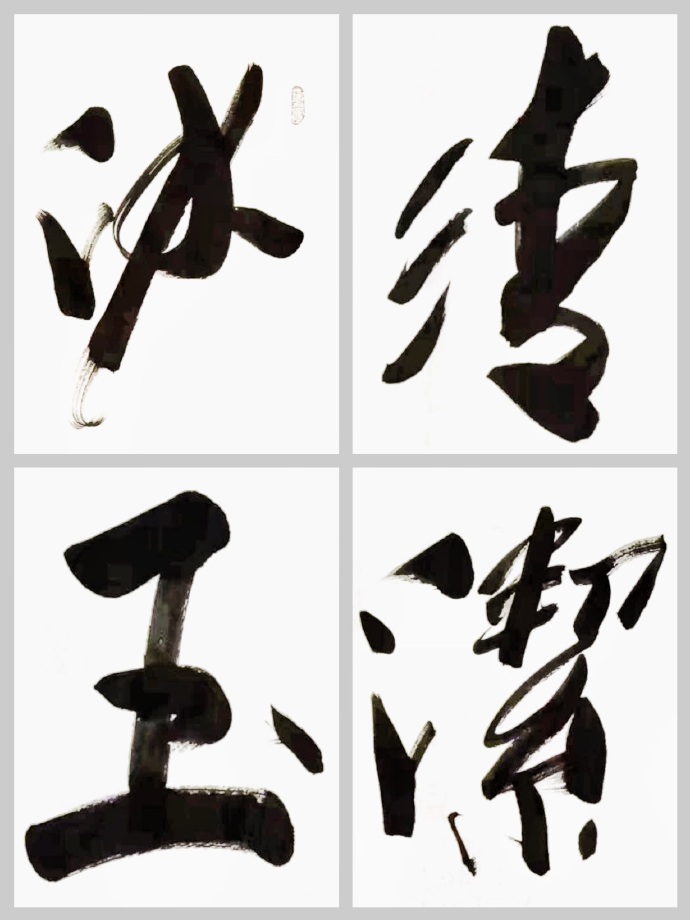 冰清
玉潔